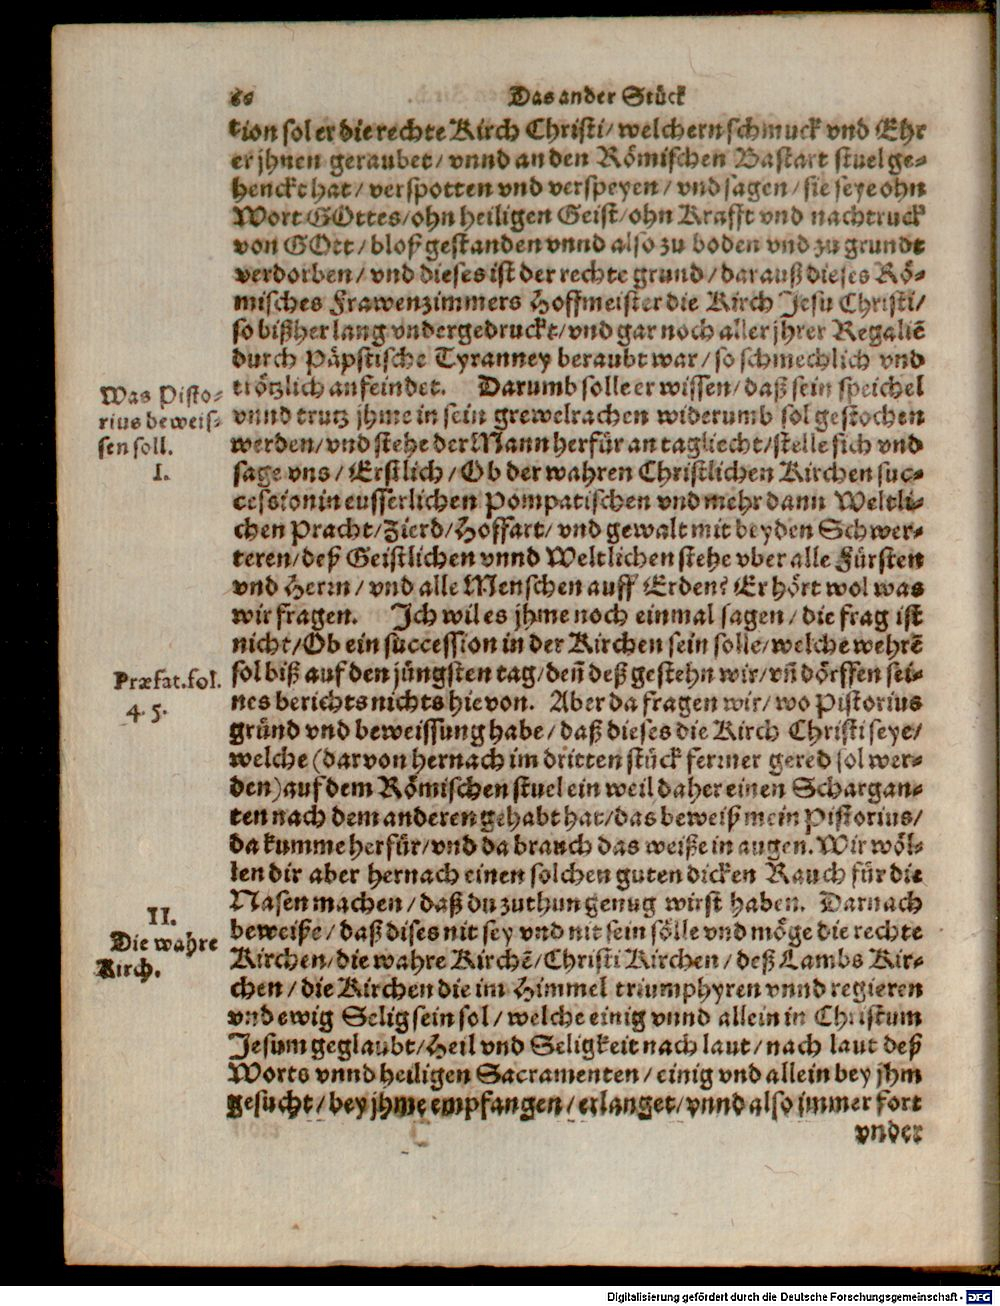 66 Das ander Stück
tion sol er die rechte Kirch Christi/ welchern schmuck vnd Ehr
er jhnen geraubet/ vnnd an den Römischen Bastart stuel ge-
henckt hat/ verspotten vnd verspeyen/ vnd sagen/ sie seye ohn
Wort GOttes/ ohn heiligen Geist/ ohn Krafft vnd nachtruck
von GOtt/ bloß gestanden vnnd also zu boden vnd zu grundt
verdorben/ vnd dieses ist der rechte grund/ darauß dieses Rö-
misches Frawenzimmers Hoffmeister die Kirch Jesu Christi/
so bißher lang vndergedruckt/ vnd gar noch aller jhrer Regaliẽ
durch Päpstische Tyranney beraubt war/ so schmechlich vnd
trötzlich anfeindet. Darumb solle er wissen/ daß sein speichel
vnnd trutz jhme in sein grewelrachen widerumb sol gestochen
werden/ vnd stehe der Mann herfür an tagliecht/ stelle sich vnd
sage vns/ Erstlich/ Ob der wahren Christlichen Kirchen suc-
cession in eusserlichen Pompatischen vnd mehr dann Weltli-
chen Pracht/ Zierd/ Hoffart/ vnd gewalt mit beyden Schwer-
teren/ deß Geistlichen vnnd Weltlichen stehe vber alle Fürsten
vnd Herrn/ vnd alle Menschen auff Erden? Er hört wol was
wir fragen. Ich wil es jhme noch einmal sagen/ die frag ist
nicht/ Ob ein succession in der Kirchen sein solle/ welche wehrẽ
sol biß auf den jüngsten tag/ deñ deß gestehn wir/ vñ dörffen sei-
nes berichts nichts hievon. Aber da fragen wir/ wo Pistorius
gründ vnd beweissung habe/ daß dieses die Kirch Christi seye/
welche (darvon hernach im dritten stück ferrner gered sol wer-
den) auf dem Römischen stuel ein weil daher einen Schargan-
ten nach dem anderen gehabt hat/ das beweiß mein Pistorius/
da kumme herfür/ vnd da brauch das weiße in augen. Wir wöl-
len dir aber hernach einen solchen guten dicken Rauch für die
Nasen machen/ daß du zuthun genug wirst haben. Darnach
beweiße/ daß dises nit sey vnd nit sein sölle vnd möge die rechte
Kirchen/ die wahre Kirchẽ/ Christi Kirchen/ deß Lambs Kir-
chen/ die Kirchen die im Himmel triumphyren vnnd regieren
vnd ewig Selig sein sol/ welche einig vnnd allein in Christum
Jesum geglaubt/ Heil vnd Seligkeit nach laut/ nach laut deß
Worts vnnd heiligen Sacramenten/ einig vnd allein bey jhm
gesucht/ bey jhme empfangen/ erlanget/ vnnd also immer fort
vnder
Was Pisto-
rius beweis-
sen soll.
I.
Præfat. fol.
4. 5.
II.
Die wahre
Kirch.
Digitalisierung gefördert durch die Deutsche Forschungsgemeinschaft - DFG